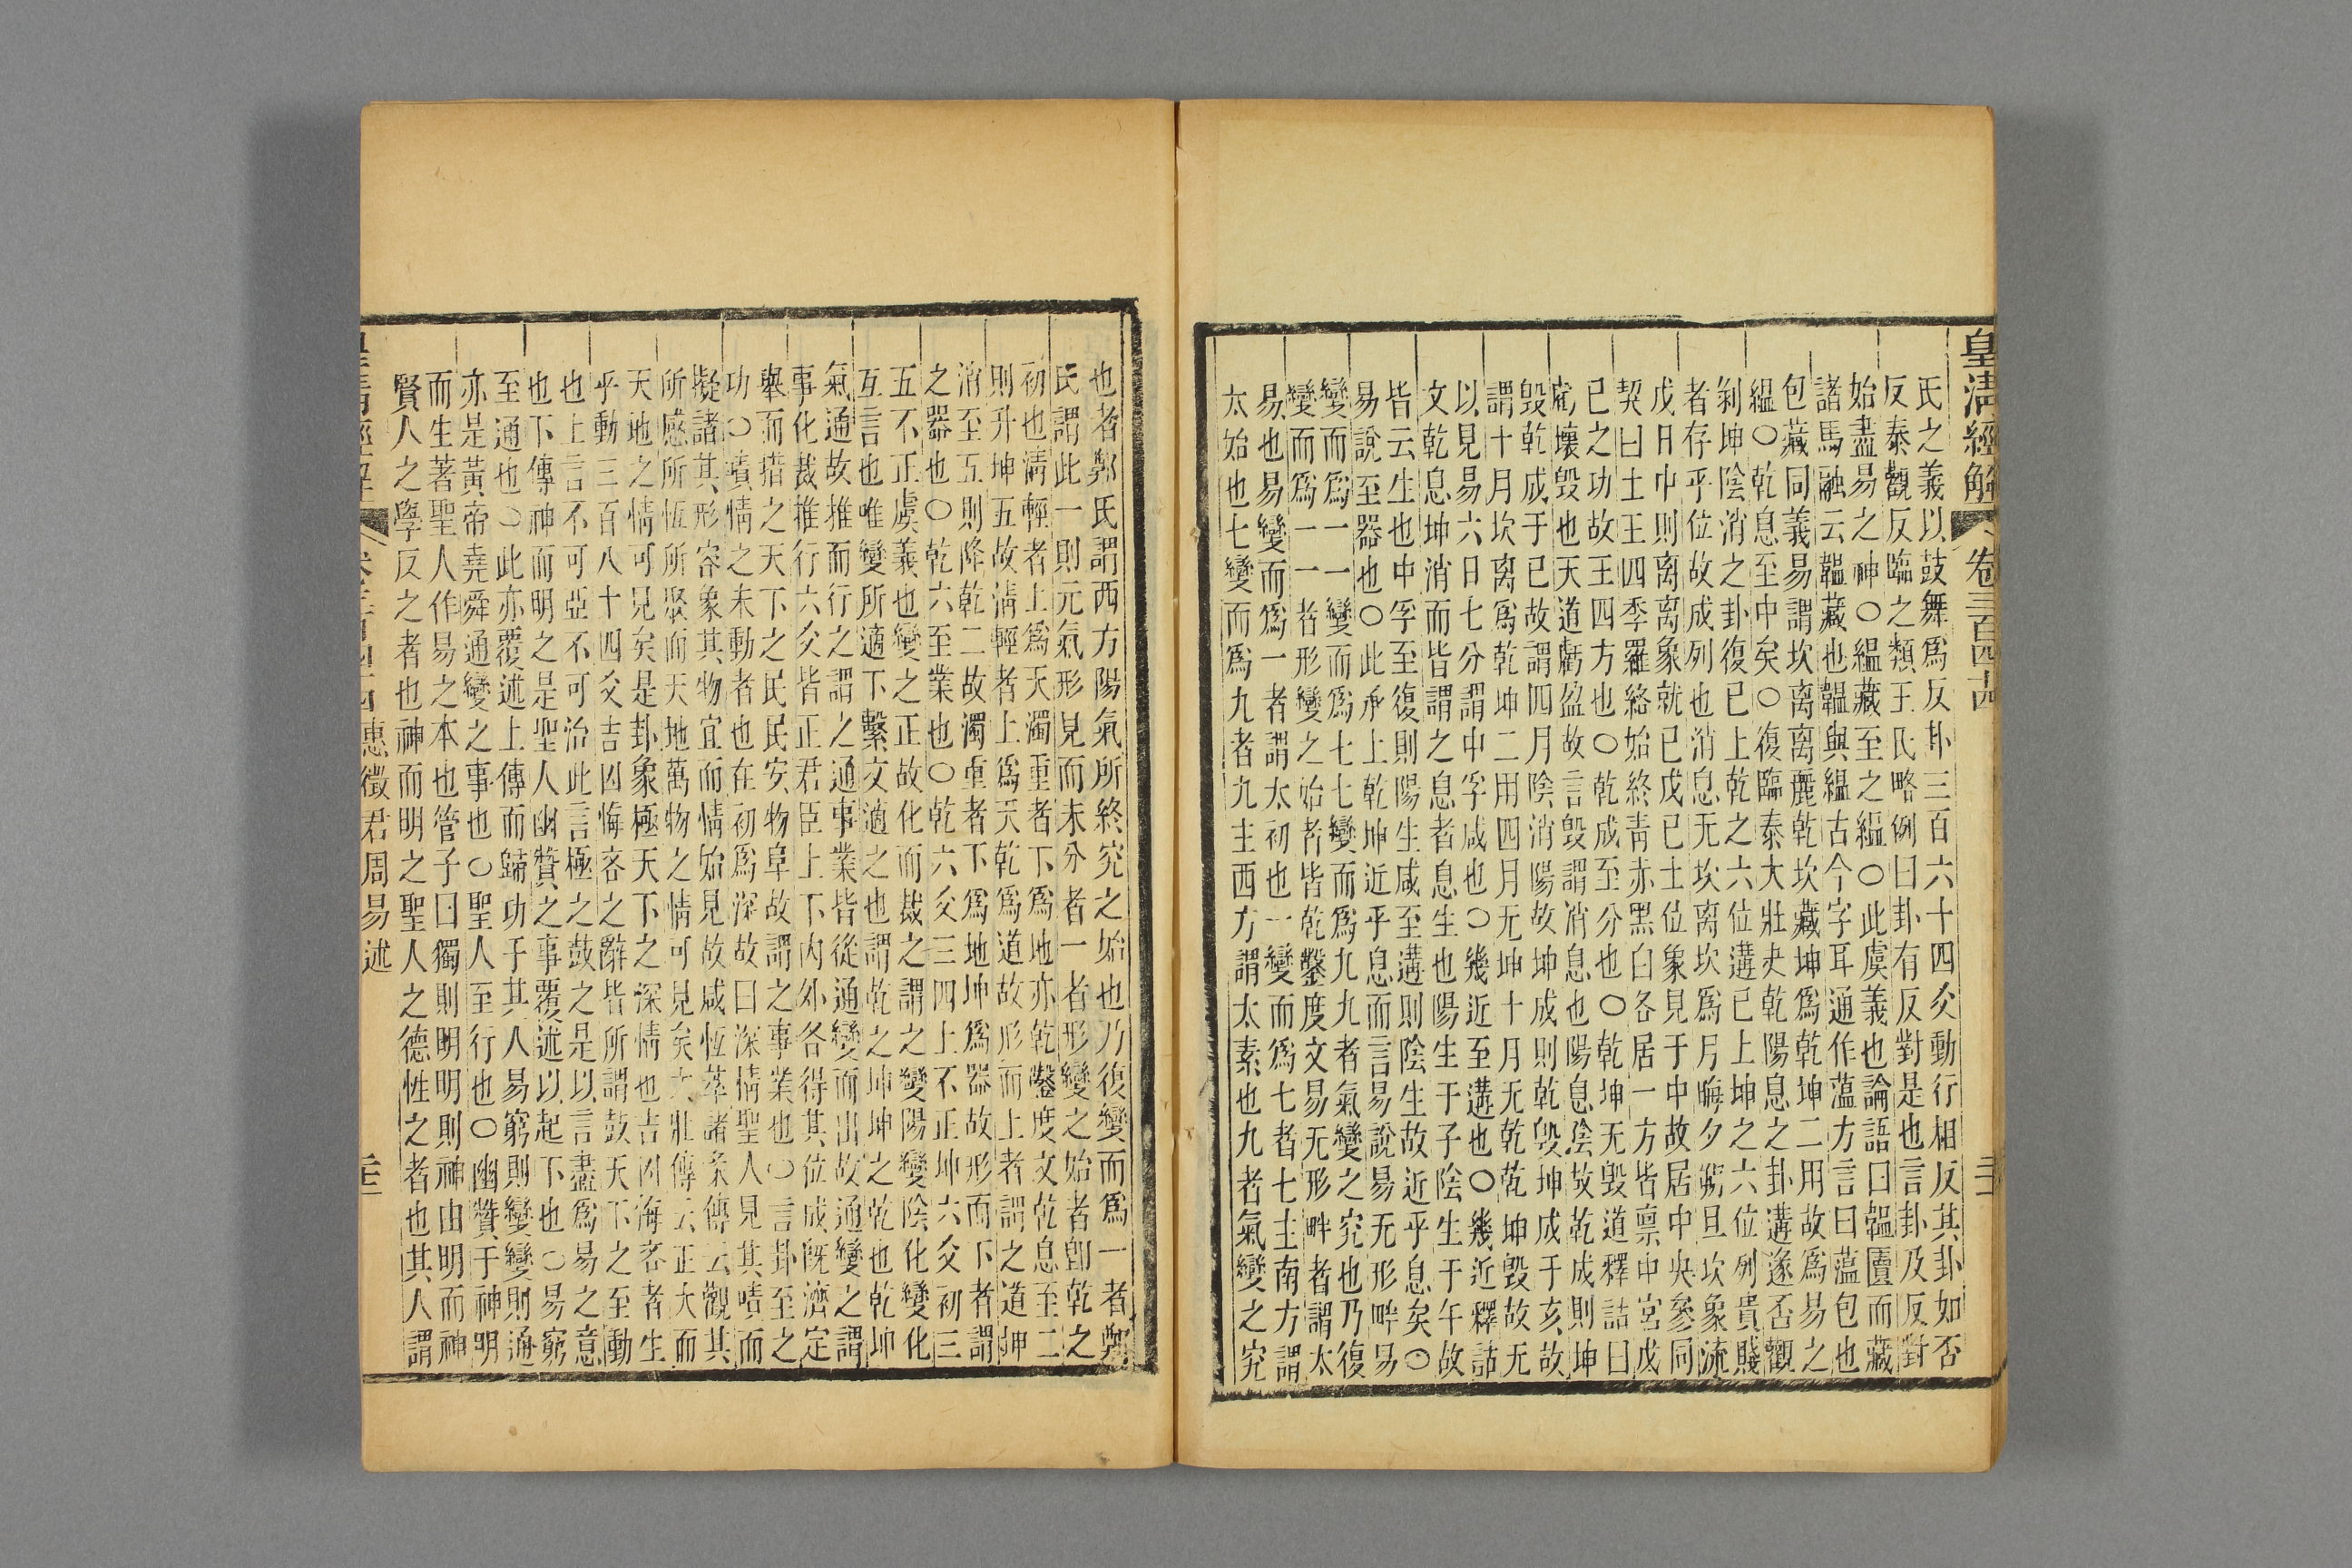 皇清經解 卷三百四十四
氏之義以鼓舞爲反卦三百六十四爻動行相反其卦如否
反泰觀反臨之類王氏略例曰卦有反對是也言卦及反對
始盡易之神〇縕藏至之縕〇此虞義也論語曰韞匵而藏
諸馬融云韞藏也韞與縕古今字耳通作薀方言曰薀包也
包藏同義易謂坎离离麗乾坎藏坤爲乾坤二用故爲易之
縕〇乾息至中矣〇復臨泰大壯夬乾陽息之卦遘遂否觀
剝坤陰消之卦復已上乾之六位遘已上坤之六位列貴賤
者存乎位故成列也消息无坎离坎爲月晦夕朔旦坎象流
戊日中則离离象就已戊已土位象見于中故居中央參同
契曰土王四季羅絡始終靑赤黑白各居一方皆禀中宮戊
已之功故王四方也〇乾成至分也〇乾坤无毀道釋詁曰
虧壞毀也天道虧盈故言毀謂消息也陽息陰故乾成則坤
毀乾成于已故謂四月陰消陽故坤成則乾毀坤成于亥故
謂十月坎离爲乾坤二用四月无坤十月无乾乾坤毀故无
以見易六日七分謂中孚咸也〇幾近至遘也〇幾近釋詁
文乾息坤消而皆謂之息者息生也陽生于子陰生于午故
皆云生也中孚至復則陽生咸至遘則陰生故近乎息矣〇
易說至器也〇此承上乾坤近乎息而言易說易无形畔易
變而爲一一變而爲七七變而爲九九者氣變之究也乃復
變而爲一一者形變之始者皆乾鑿度文易无形畔者謂太
易也易變而爲一者謂太初也一變而爲七者七主南方謂
太始也七變而爲九者九主西方謂太素也九者氣變之究
也者鄭氏謂西方陽氣所終究之始也乃復變而爲一者鄭
氏謂此一則元氣形見而未分者一者形變之始者卽乾之
初也淸輕者上爲天濁重者下爲地亦乾鑿度文乾息至二
則升坤五故淸輕者上爲天乾爲道故形而上者謂之道坤
消至五則降乾二故濁重者下爲地坤爲器故形而下者謂
之器也〇乾六至業也〇乾六爻三四上不正坤六爻初三
五不正虞義也變之正故化而裁之謂之變陽變陰化變化
互言也唯變所適下繫文適之也謂乾之坤坤之乾也乾坤
氣通故推而行之謂之通事業皆從通變而出故通變之謂
事化裁推行六爻皆正君臣上下內外各得其位成旣濟定
舉而措之天下之民民安物阜故謂之事業也〇言卦至之
功〇賾情之未動者也在初爲深故曰深情聖人見其嘖而
擬諸其形容象其物宜而情始見故咸恆萃諸彖傳云觀其
所感所恆所聚而天地萬物之情可見矣大壯傳云正大而
天地之情可見矣是卦象極天下之深情也吉凶悔吝者生
乎動三百八十四爻吉凶悔吝之辭皆所謂鼓天下之至動
也上言不可亞不可治此言極之鼓之是以言盡爲易之意
也下傳神而明之是聖人幽贊之事覆述以起下也〇易窮
至通也〇此亦覆述上傳而歸功于其人易窮則變變則通
亦是黃帝堯舜通變之事也〇聖人至行也〇幽贊于神明
而生蓍聖人作易之本也管子曰獨則明明則神由明而神
賢人之學反之者也神而明之聖人之德性之者也其人謂
惠徵君周易述